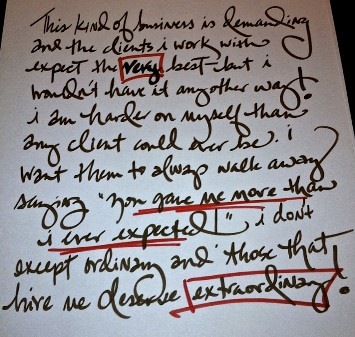 This kind of business is demanding
and the clients i work with
expect the very best but i
wouldn't have it any other way!
i am harder on myself than
any client could ever be. i
want them to always walk away
saying "you gave me more than
i ever expected!" i don't
except ordinary and those that
hire me deserve extraordinary!